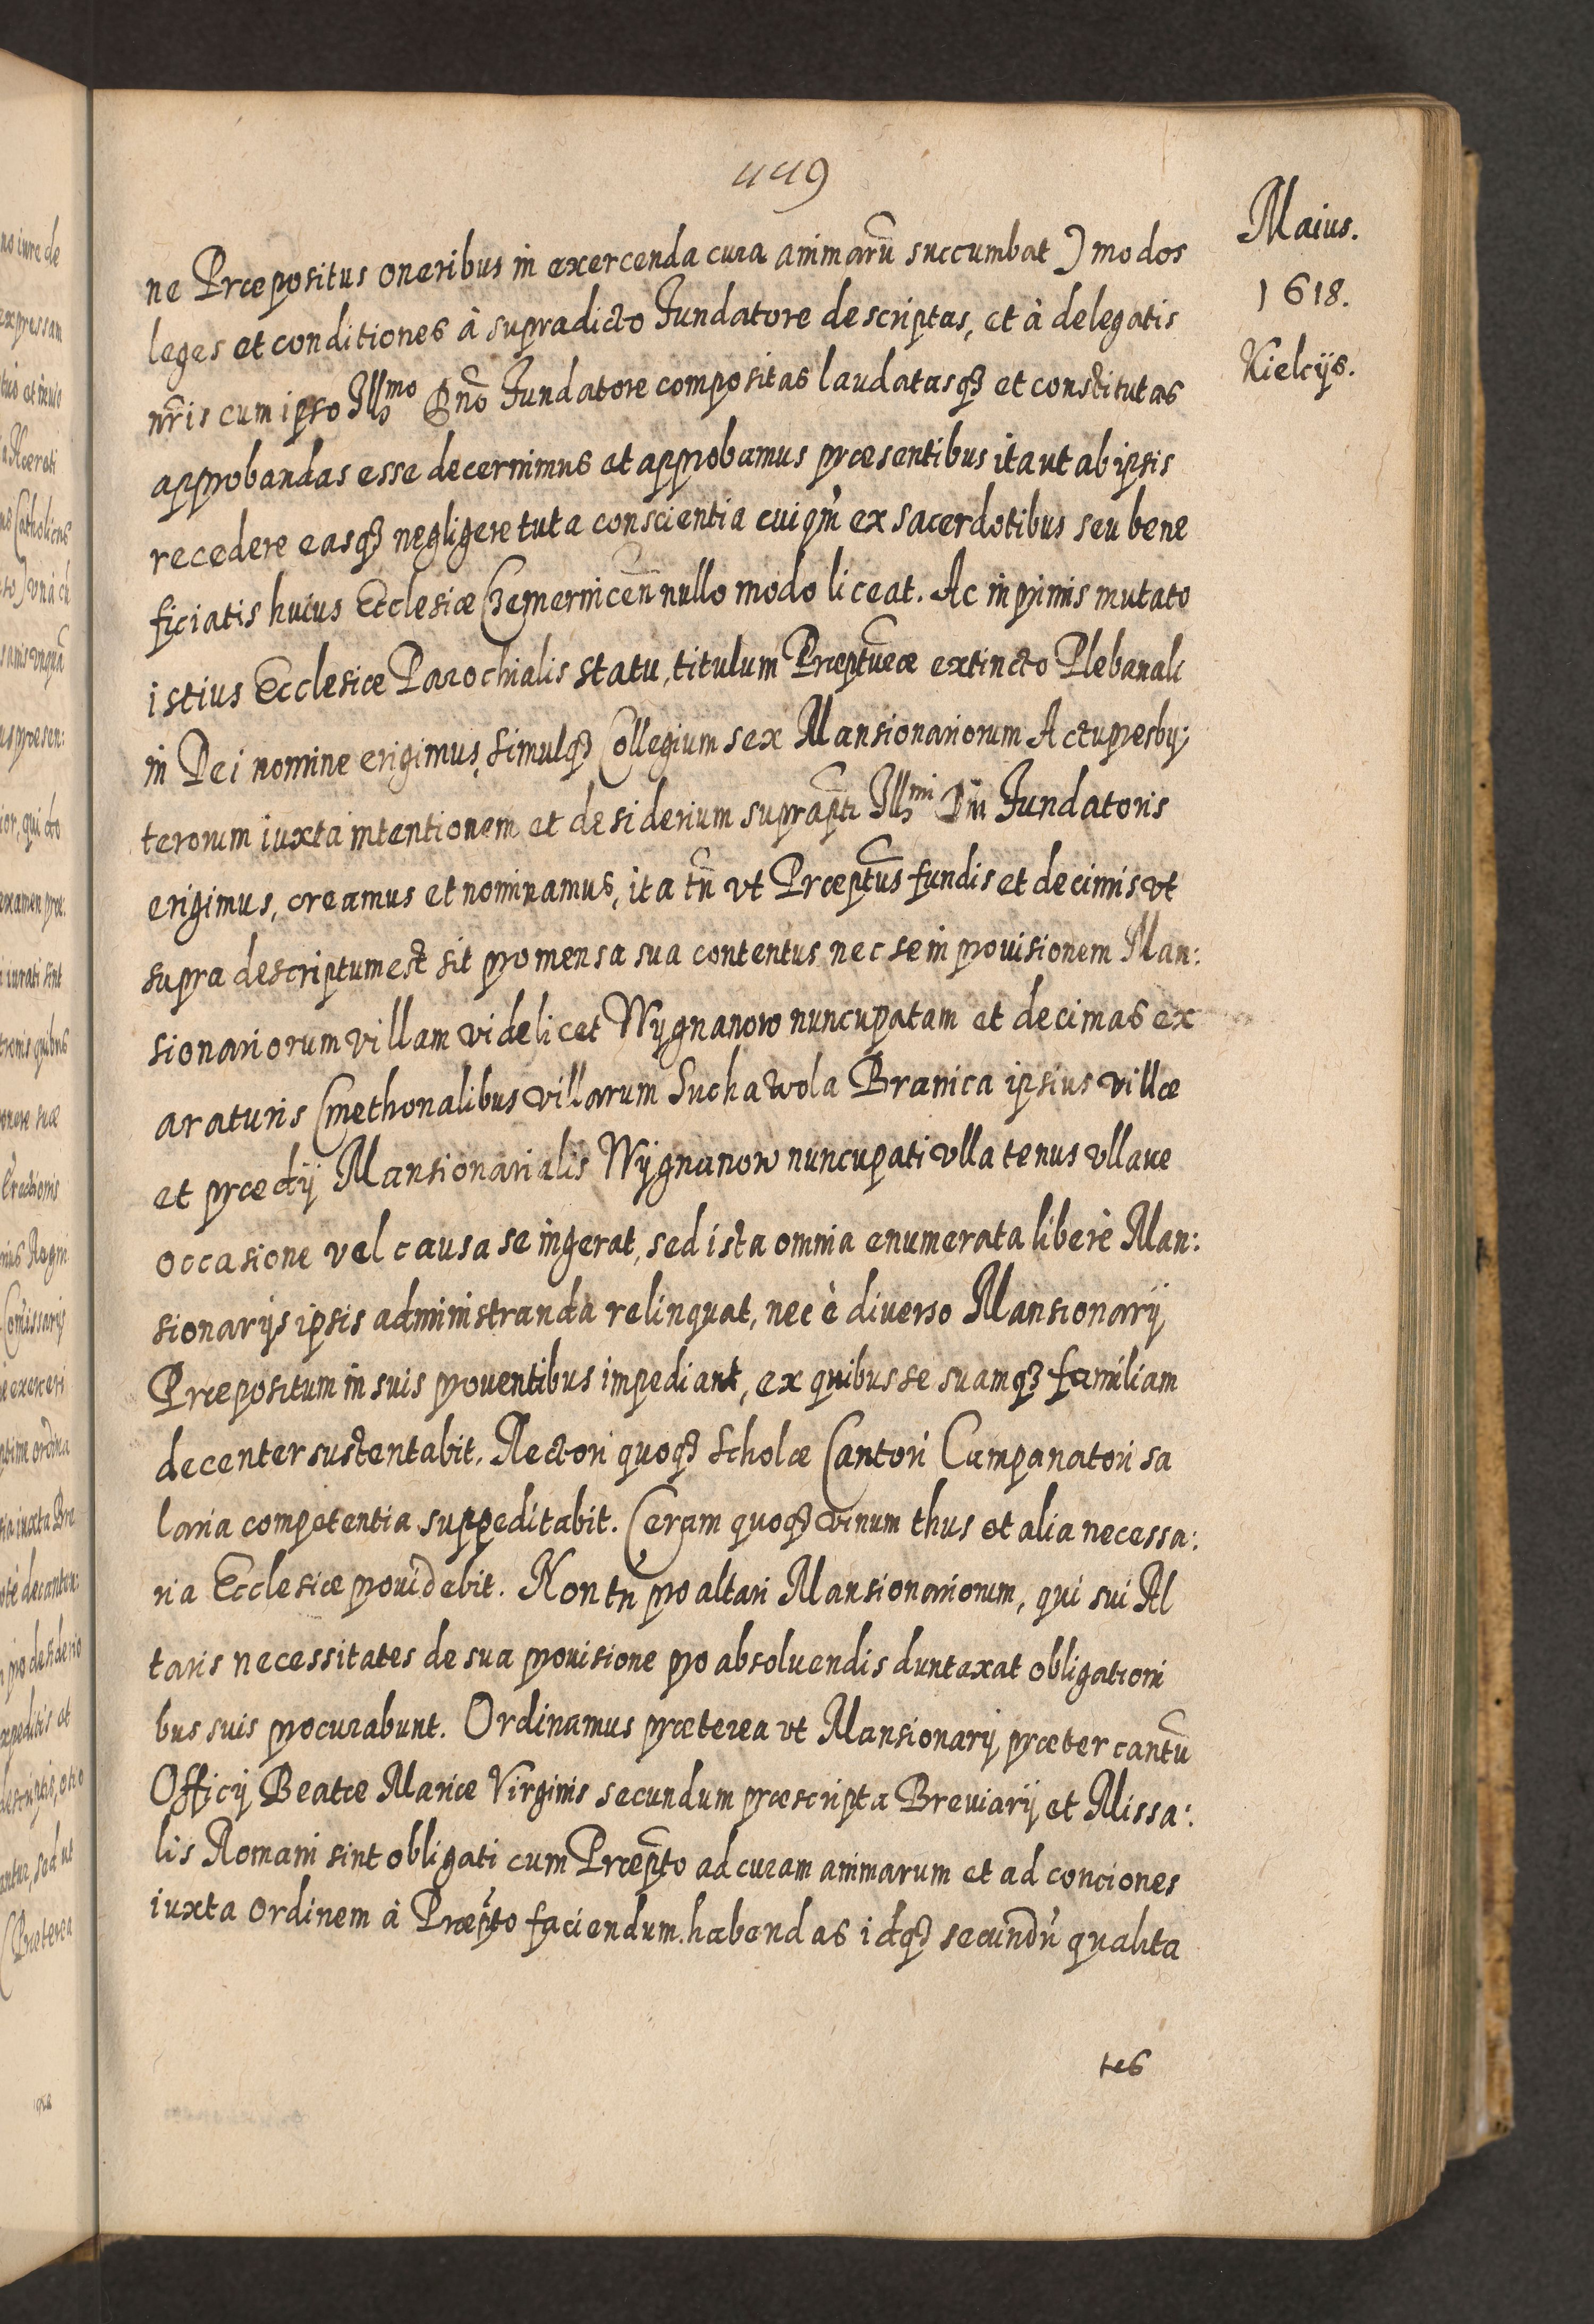 449
Maius.
1618.
Kielcijs.
ne Præpositus oneribus in exercenda cura animarū succumbat) modos
leges et conditiones à supradicto Fundatore descriptas, et à delegatis
nr̃is cum ipso Illmo Dño Fundatore compositas laudatasqꝫ et constitutas
approbandas esse decernimus et approbamus præsentibus ita ut ab ipsis
recedere easqꝫ negligere tuta conscientia cuiqm̃ ex sacerdotibus seu bene
ficiatis huius Ecclesiæ Czemernicen̄ nullo modo liceat. Ac inprimis mutato
istius Ecclesiæ Parochialis statu, titulum Præpt̄uræ extincto Plebanali
in Dei nomine erigimus, simulqꝫ Collegium sex Mansionariorum Actupresby:
terorum iuxta intentionem et desiderium suprap̄ti Illmi Dn̄i Fundatoris
erigimus, creamus et nominamus, ita tn̄ vt Præpt̄us fundis et decimis vt
supra descriptum est sit pro mensa sua contentus nec se in prouisionem Man:
sionariorum villam videlicet Wygnanow nuncupatam et decimas ex
araturis Cmethonalibus villarum Sucha wola Branica ipsius villæ
et prædij Mansionarialis Wygnanow nuncupati vlla tenus vllaue
occasione vel causa se ingerat, sed ista omnia enumerata liberè Man:
sionarijs ipsis administranda relinquat, nec è diverso Mansionarij
Præpositum in suis prouentibus impediant, ex quibus se suamqꝫ familiam
decenter sustentabit. Rectori quoqꝫ Scholæ Cantori Campanatori sa
laria competentia suppeditabit. Ceram quoqꝫ vinum thus et alia necessa:
ria Ecclesiæ prouidebit. Non tn̄ pro altari Mansionariorum, qui sui Al
taris necessitates de sua prouisione pro absoluendis duntaxat obligationi
bus suis procurabunt. Ordinamus præterea vt Mansionarij præter cantū
Officij Beatæ Mariæ Virginis secundum præscripta Breuiarij et Missa:
lis Romani sint obligati cum Præp̄to ad curam animarum et ad conciones
iuxta ordinem à Præp̄to faciendum habendas idqꝫ secundū qualita
tes